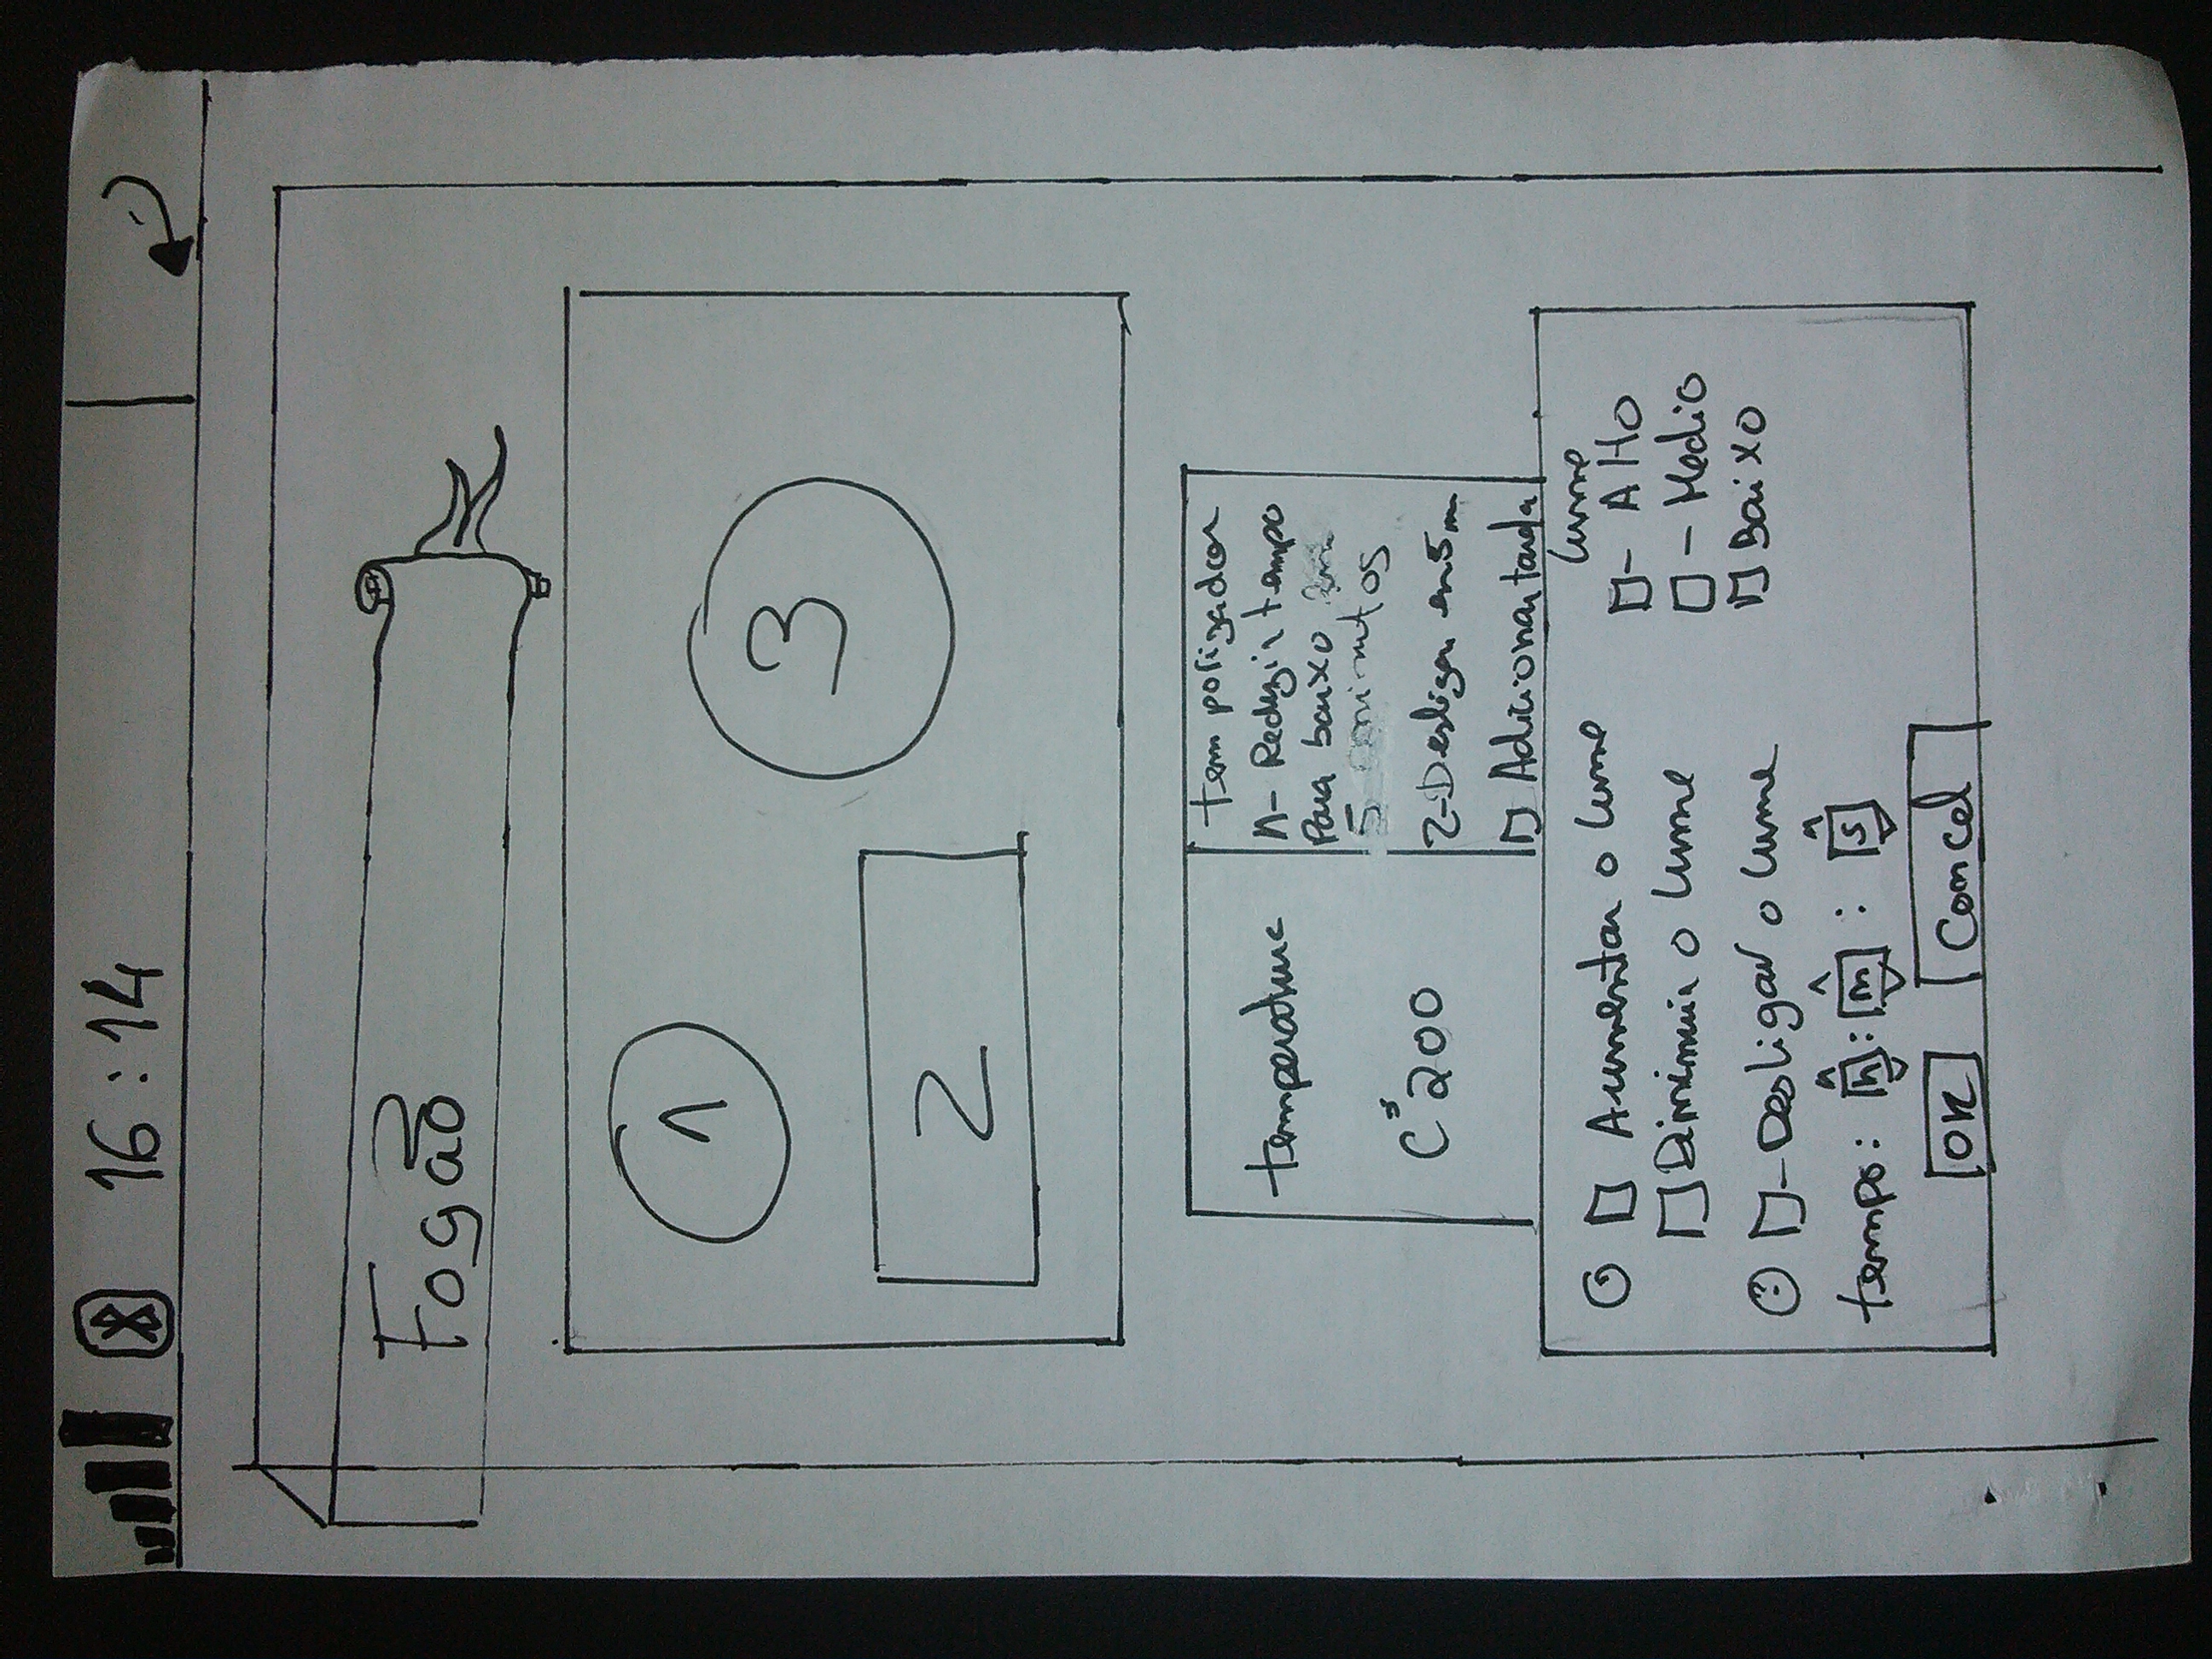 16:14
Fogão
1
2
3
temperature
Cº 200
temporizador
1- Reduzir tempo
Para baixo
5 minutos
2-Desligar em 5m
Adicionar tarefa
Aumentar o lume
Diminuir o lume
- Desligar o lume
tempo: h : m : s
lume
- Alto
- Medio
Baixo
OK
Cancel